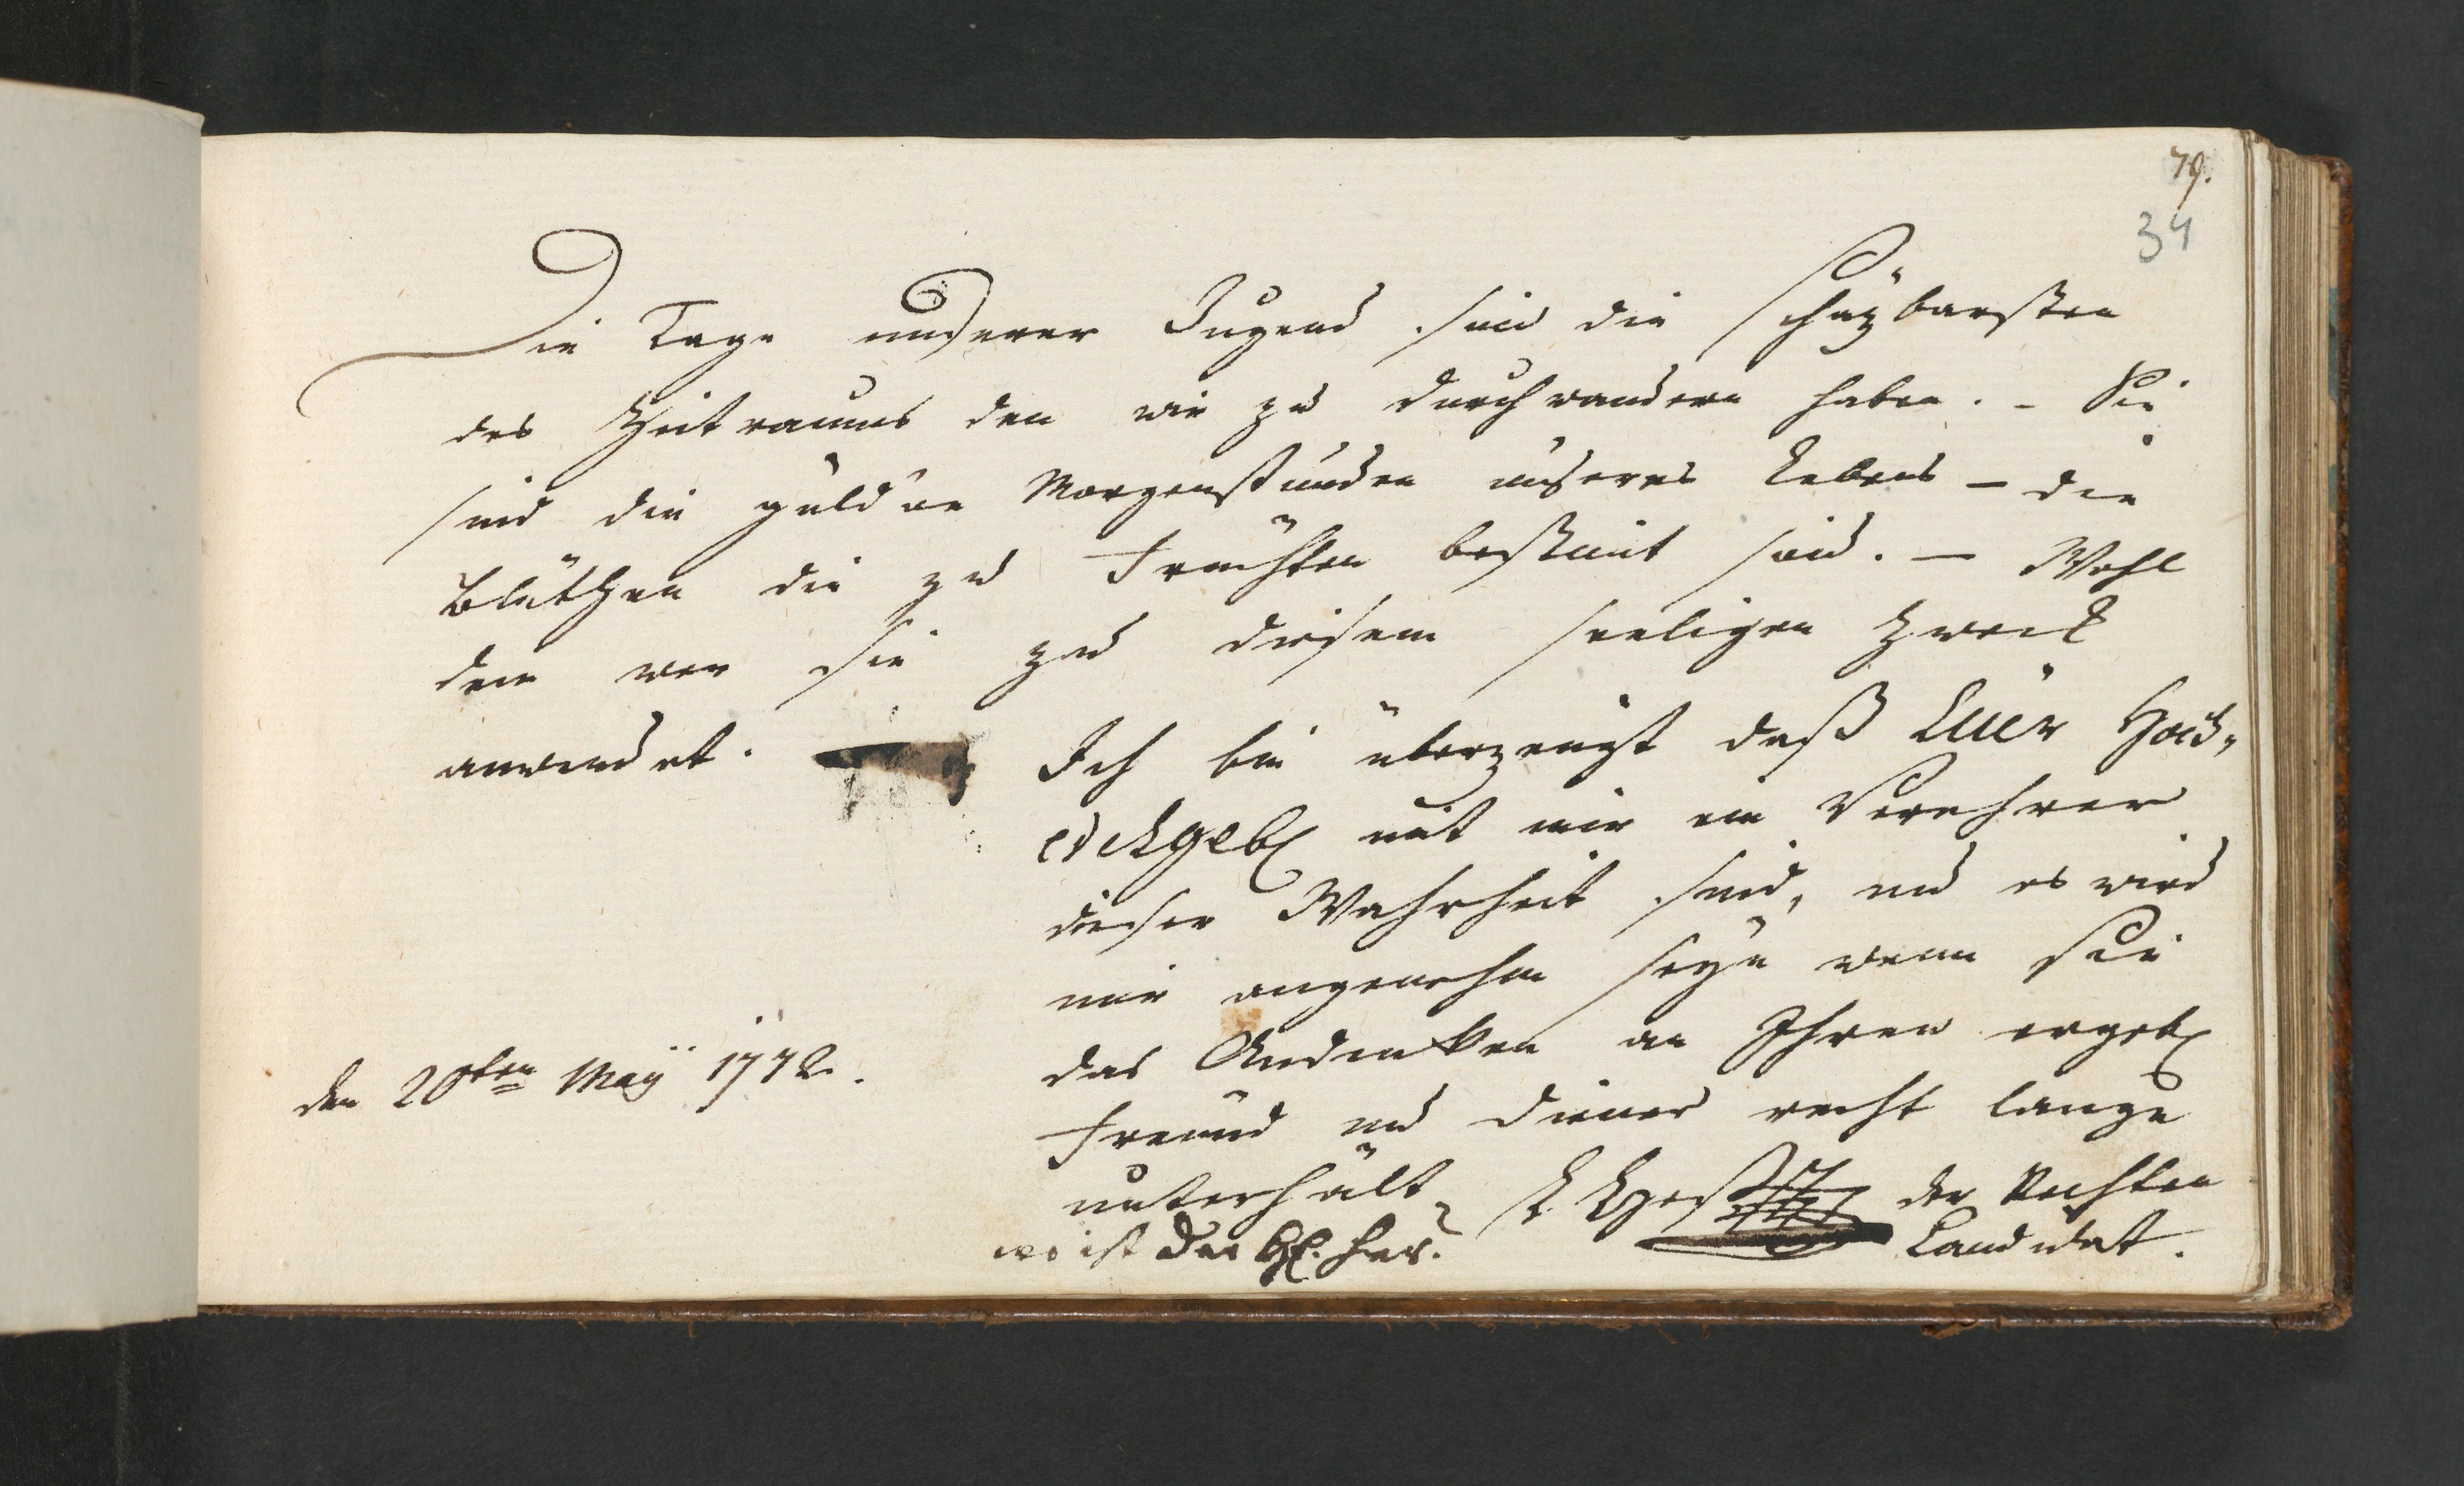 79.
34
Die Tage unserer Jugend sind die schäzbarsten
des Zeitraums den wir zu durchwandern haben. - Sie
sind die guldne Morgenstunden unseres Lebens - die
Blüthen die zu Früchten bestimt sind. - Wohl
dem wer sie zu diesem seeligen Zweck
anwendet.
Ich bin überzeugt daß Euer
mit mir ein Verehrer
dieser Wahrheit sind, und es wird
mir angenehm seyn wenn Sie
das Andenken an Ihren ergeb
Freund und Diener recht lange
unterhält
der Rechten
Candidat.
wo ist der H. her?
den 20ten May 1772.